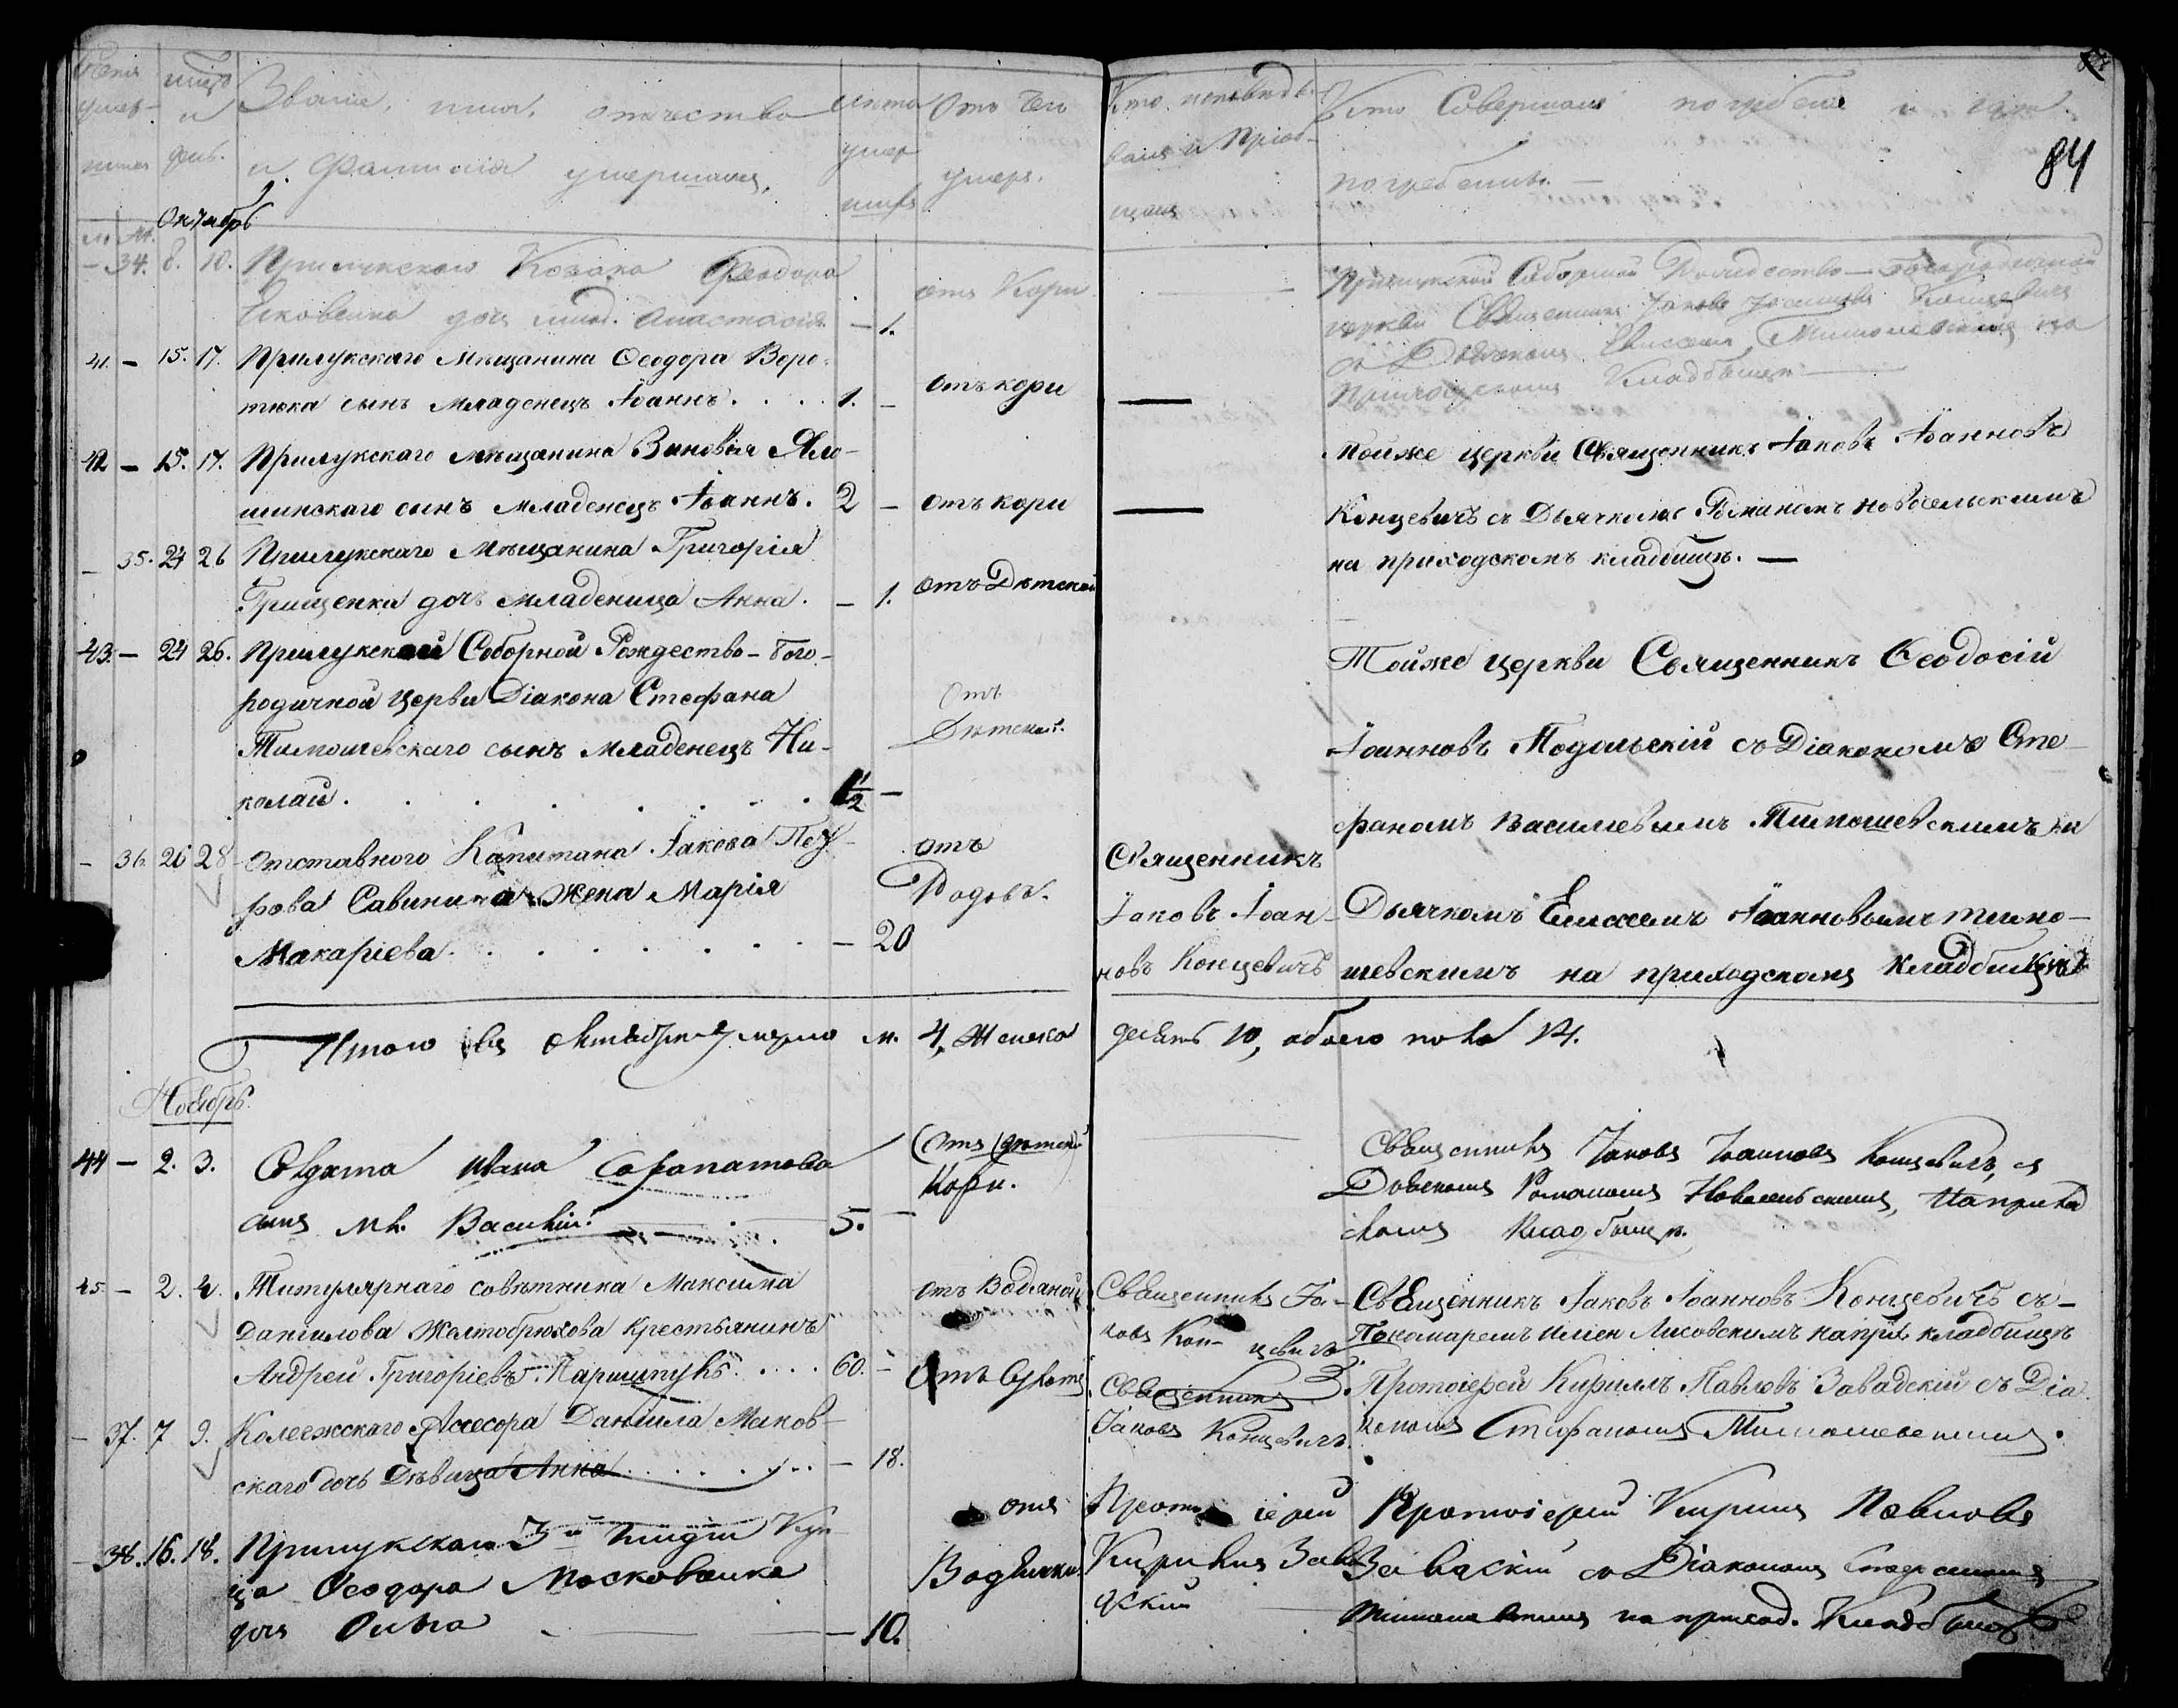 84
Звание, имя, отчество
и Фамилия умершаго,
Отъ чего
умеръ.
Кто Совершалъ погребение и гдѣ
погребены. —
Октябрь
— 34. 8. 10. Прилукскаго Козака Феодора
дочь млад. Анастасія — 1.
отъ Кори
Прилукской Соборной Рождество-Богородичной
церкви Священникъ Іаковъ Іоанновъ Концевичъ
съ Дьячкомъ Елисеемъ Тимошевскимъ на
Приходскомъ Кладбищѣ —
41. — 15. 17. Прилукскаго Мѣщанина Ѳеодора Воро-
тюка сынъ младенецъ Іоаннъ . . . . 1. —
отъ кори
—
42 — 15. 17. Прилукскаго мѣщанина Зиновія Яло-
шинскаго сынъ младенецъ Іоаннъ. 2 —
отъ кори
—
Тойже церкви Священникъ Іаковъ Іоанновъ
Концевичъ съ Дьячкомъ Романомъ Новосельскимъ
на приходскомъ кладбищѣ. —
— 35. 24 26 Прилукскаго Мѣщанина Григорія
Грищенка дочь младеница Анна. — 1.
отъ Дѣтской
43. — 24 26. Прилукской Соборной Рождество-Бого-
родичной Церкви Діакона Стефана
Тимошевскаго сынъ младенецъ Ни-
колай . . . . . . . 1/2 —
отъ
Дѣтской.
Тойже церкви Священникъ Ѳеодосій
Іоанновъ Подольскій съ Діакономъ Сте-
фаномъ Васильевымъ Тимошевскимъ и
Дьячкомъ Елисеемъ Іоанновымъ Тимо-
шевскимъ на приходскомъ кладбищѣ
— 36. 26 28 Отставного Капитана Іакова Пет-
рова Савинича жена Марія
Макаріева . . . . . . . — 20
отъ
Родовъ.
Священникъ
Іаковъ Іоан-
новъ Концевичъ
Итого въ Октябрѣ умерло м. 4, женска десять 10, обоего пола 14.
Ноябрь
44 — 2. 3. Солдата Ивана
сынъ мл. Василій 5. —
Отъ (дѣтской)
Кори.
Священникъ Іаковъ Іоанновъ Концевичъ, съ
Дьячкомъ Романомъ Новосельскимъ, на приход
скомъ Кладбищѣ.
45 — 2. 4. Титулярнаго совѣтника Максима
Данилова Желтобрюхова крестьянинъ
Андрей Григоріевъ . . . . 60. —
отъ Водяной
Священникъ Іа-
ковъ Кон- цевичъ
Священникъ Іаковъ Іоанновъ Концевичъ съ
Пономаремъ Лисовскимъ на прих. кладбищѣ
— 37. 7 9. Колежскаго Ассесора Даніила Маков-
скаго дочь Дѣвица Анна . . . . . . — 18.
Отъ
Священникъ
Іаковъ Концевичъ.
Протоіерей Кириллъ Павловъ Завадскій съ Діа
кономъ Стефаномъ Тимошевскимъ.
— 38. 16. 18. Прилукскаго 3й Гилдіи Куп
ца Ѳеодора Московенка
дочь Ольга — 10.
отъ
Водянки
Прото іерей
Кириллъ Зава
дскій
Протоіерей Кириллъ Павловъ
Завадскій съ Діакономъ Стефаномъ
Тимошевскимъ на приход. Кладбищѣ